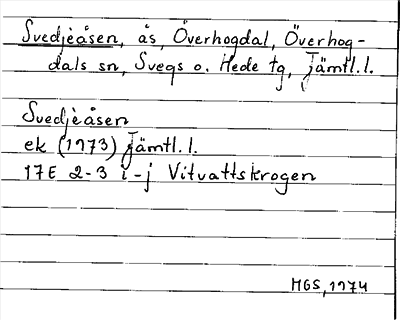 Svedjeåsen, ås, Överhogdal, Överhog-
dals sn, Svegs o. Hede tg, Jämtl.l.
Svedjeåsen
ek (1973) Jämtl.l.
17E 2-3 i-j Vitvattskrogen
MGS, 1974